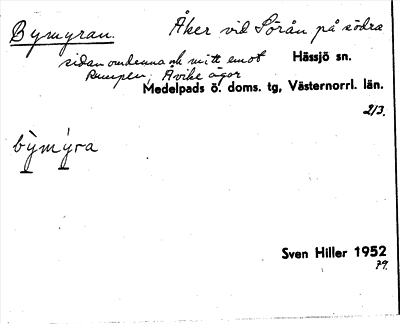 Bymyran. Åker vid Sörån på södra
sidan om denna och mitt emot Hässjö sn.
Rumpen, Åvike ägor
Medelpads ö. doms. tg, Västernorrl. län.
2/3.
bỳmýra
Sven Hiller 1952
79.